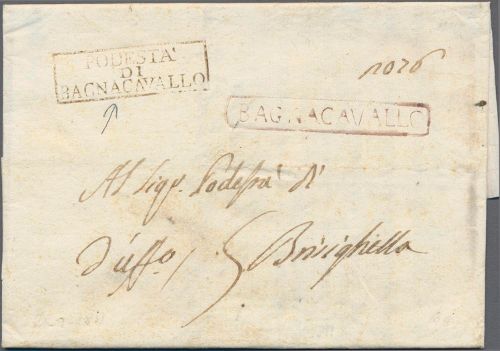 PODESTA'
DI
BAGNACAVALLO
BAGNACAVALLO
Al Sigr. Podestà di
d'uffo / Brisighella